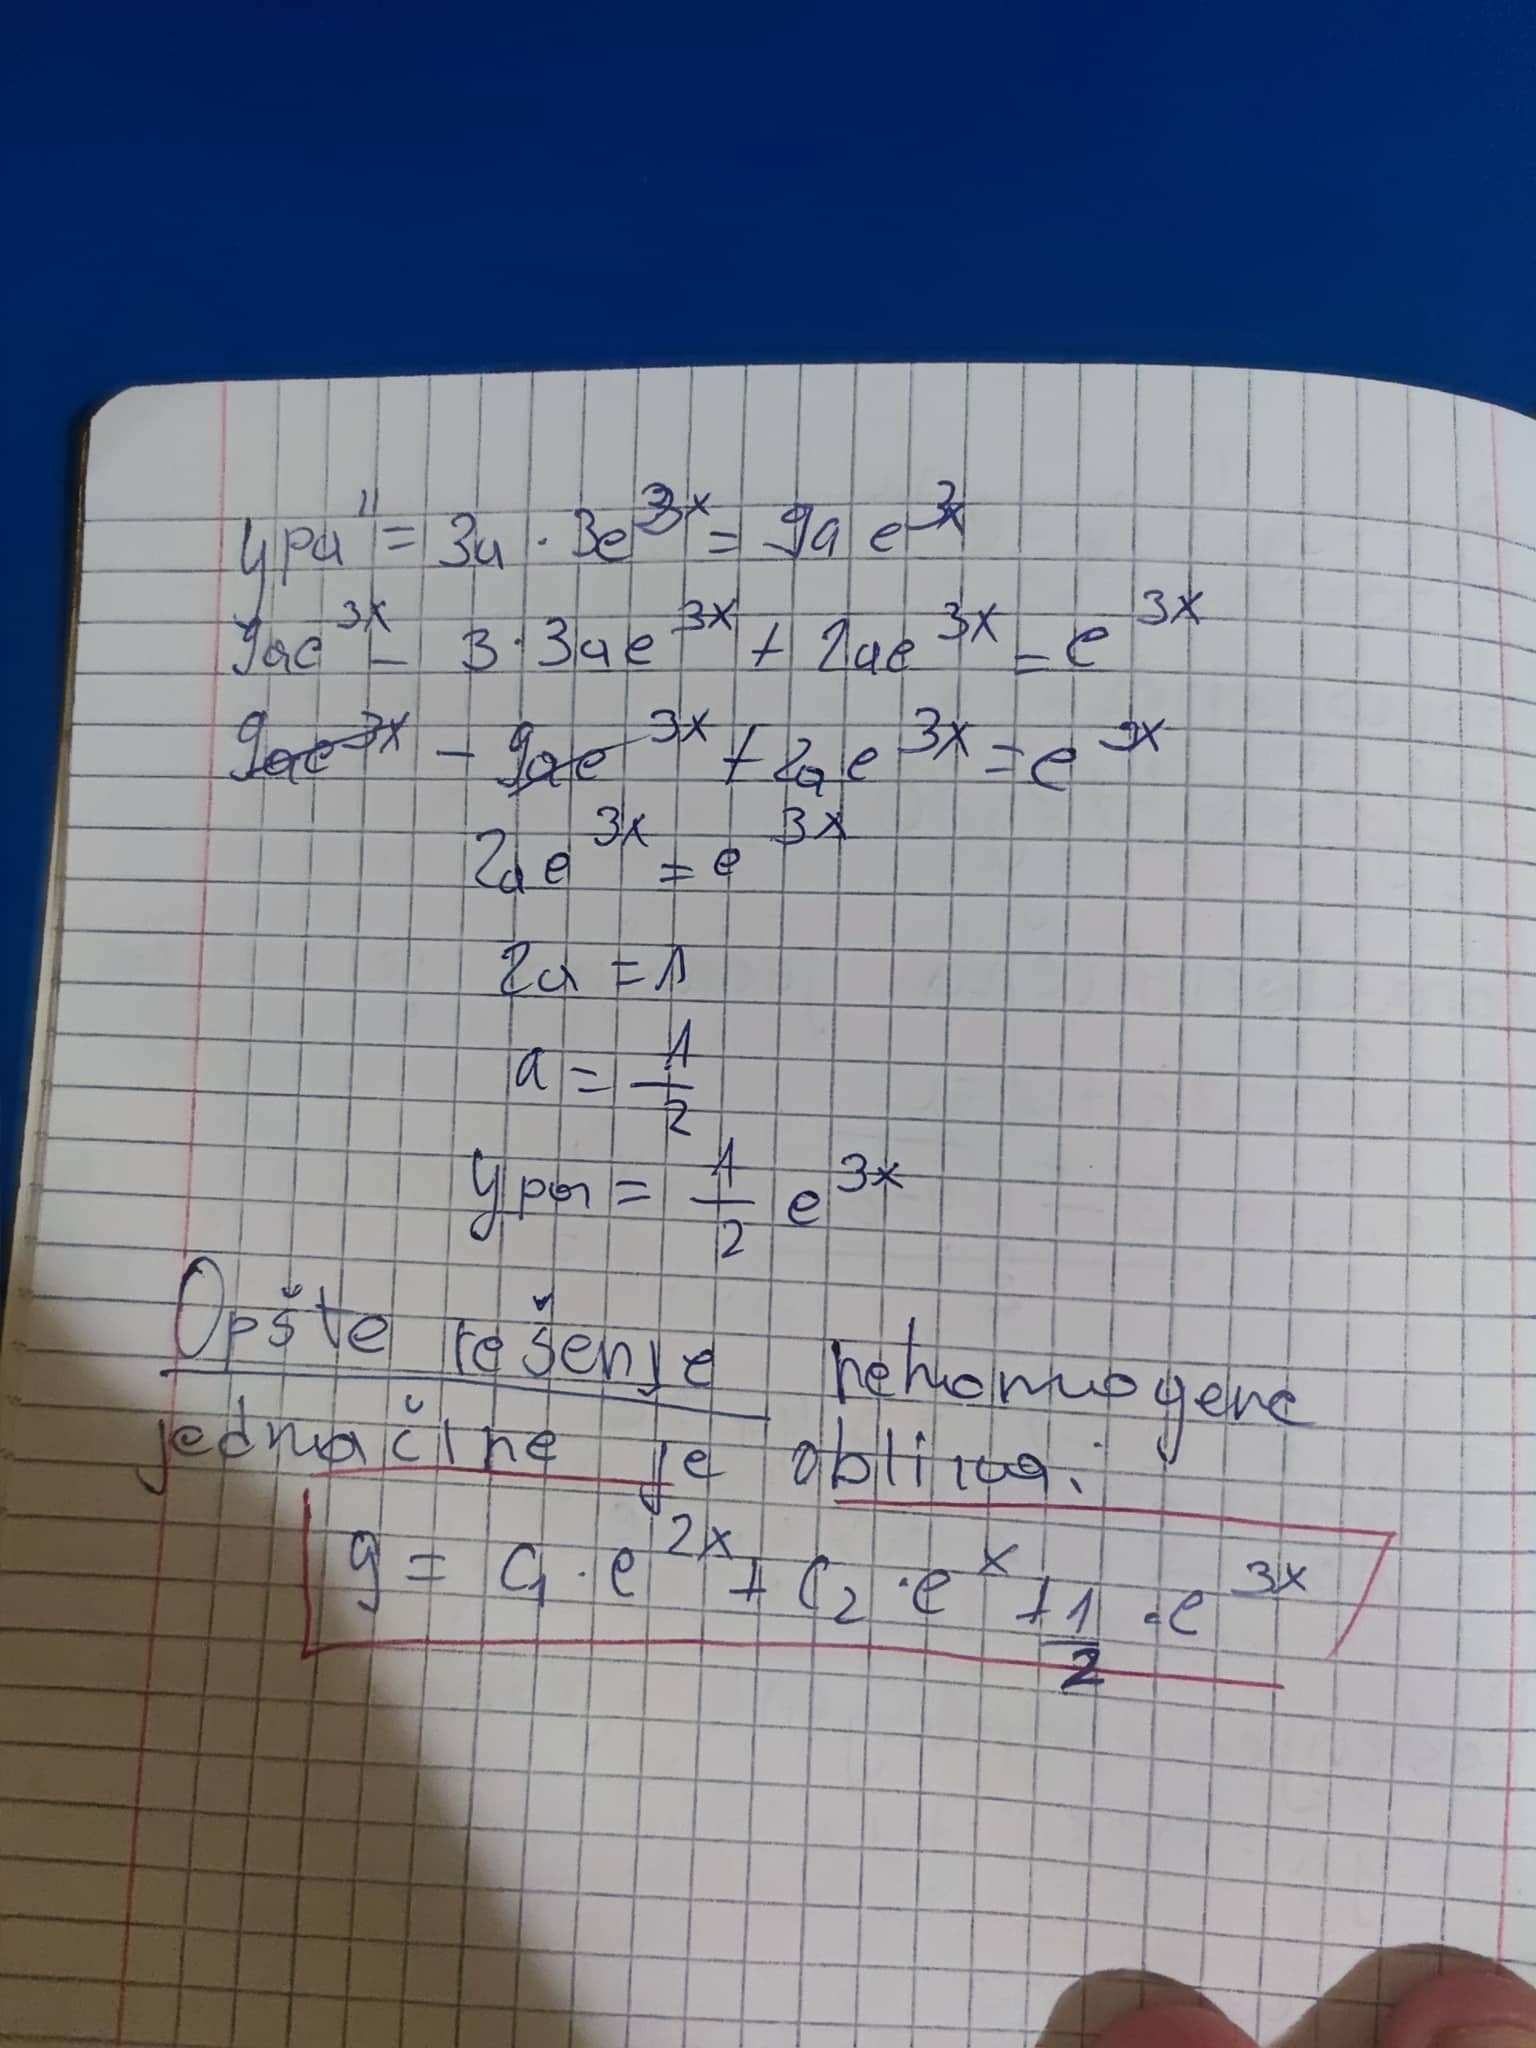 ypa'' = 3a · 3e^3x = 9a e^3x
9ae^3x - 3·3ae^3x + 2ae^3x = e^3x
9ae^3x - 9ae^3x + 2ae^3x = e^3x
2ae^3x = e^3x
2a = 1
a = 1/2
ypa = 1/2 e^3x
Opšte rešenje nehomogene
jednačine je oblika:
y = C1·e^2x + C2·e^x + 1/2·e^3x